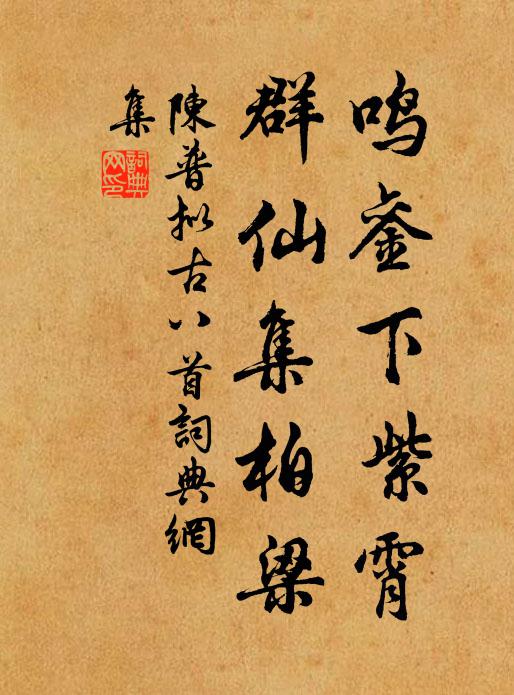 鸣銮下紫霄
群仙集柏梁
陳普拟古八首詞典網
集
詞典
网印